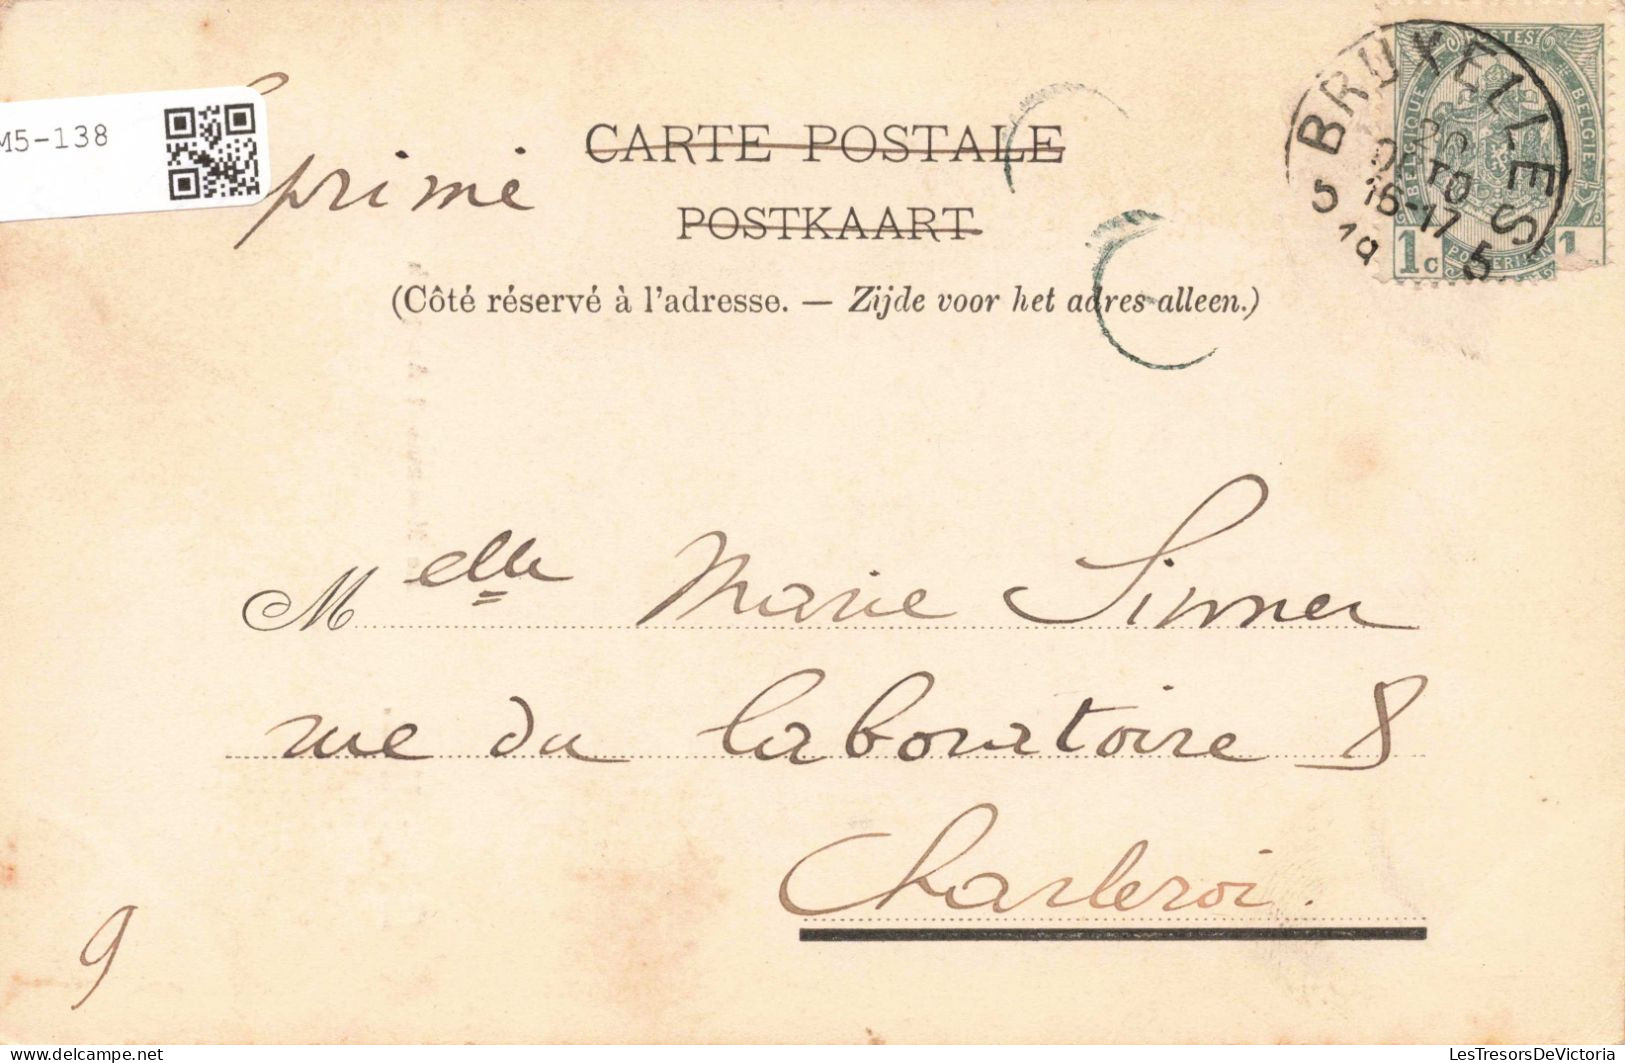 M5-138
CARTE POSTALE
POSTKAART
(Côté réservé à l'adresse. — Zijde voor het adres alleen.)
POSTES
BELGIQUE
BELGIË
1c
1
BRUXELLES
16-17
5
5
19
Melle Marie Sinner
rue du laboratoire 8
Charleroi.
9
LesTresorsDeVictoria